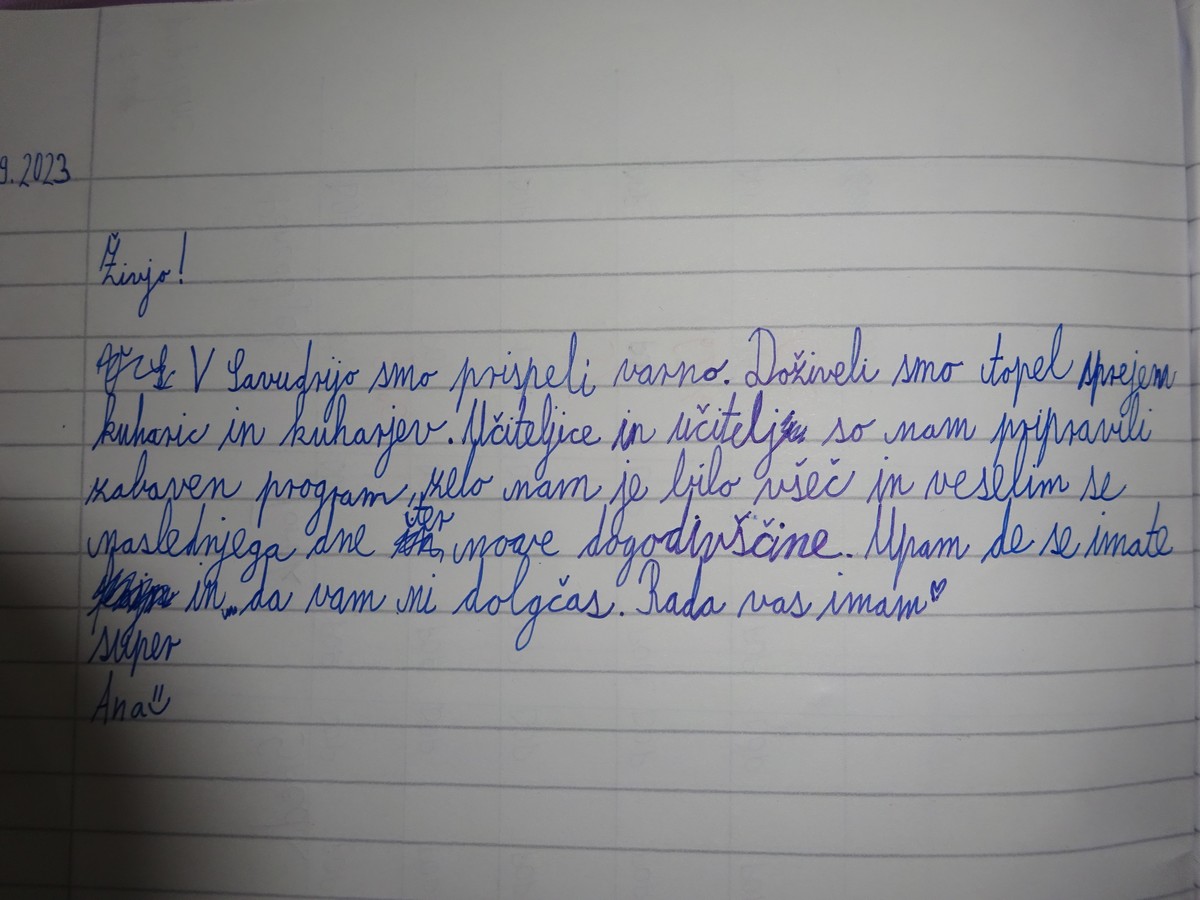 9.2023
Živjo!
V Savudrijo smo prispeli varno. Doživeli smo topel sprejem
kuharic in kuharjev. Učiteljice in učitelji so nam pripravili
zabaven program, zelo nam je bilo všeč in veselim se
naslednjega dne ter nove dogodivščine. Upam de se imate
in da vam ni dolgčas. Rada vas imam♥
super
Ana